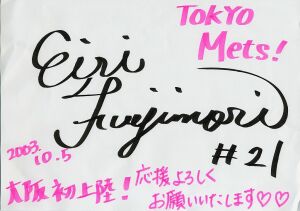 TOKYO
Mets!
Eiri
Fujimori
#21
2003.
10.5
大阪初上陸!
応援よろしく
お願いいたします♡♡